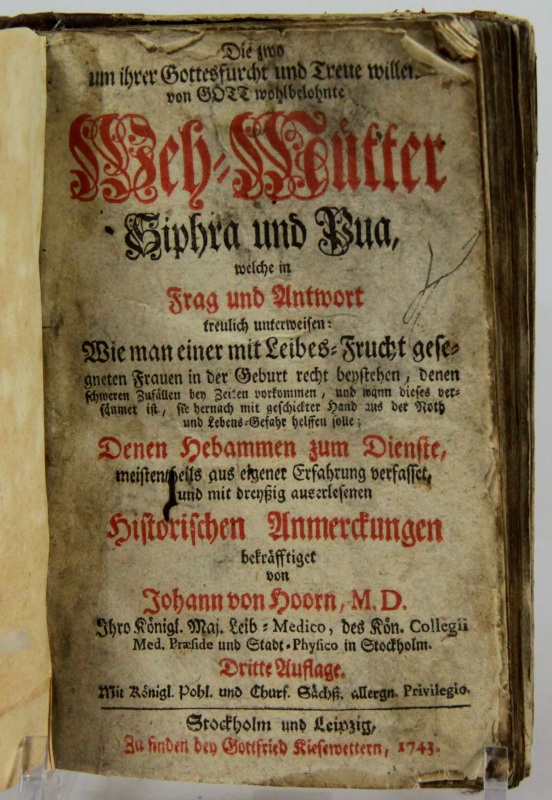 Die zwo
um ihrer Gottesfurcht und Treue willen
von GOTT wohlbelohnte
Weh-Mütter
Siphra und Pua,
welche in
Frag und Antwort
treulich unterweisen:
Wie man einer mit Leibes-Frucht gese-
gneten Frauen in der Geburt recht beystehen, denen
schweren Zufällen bey Zeiten vorkommen, und wann dieses ver-
säumet ist, sie hernach mit geschickter Hand aus der Noth
und Lebens-Gefahr helffen solle;
Denen Hebammen zum Dienste,
meistentheils aus eigener Erfahrung verfasset,
und mit dreyßig auserlesenen
Historischen Anmerckungen
bekräfftiget
von
Johann von Hoorn, M.D.
Ihro Königl. Maj. Leib-Medico, des Kön. Collegii
Med. Præside und Stadt-Physico in Stockholm.
Dritte Auflage.
Mit Königl. Pohl. und Churf. Sächß. allergn. Privilegio.
Stockholm und Leipzig,
Zu finden bey Gottfried Kiesewettern, 1743.